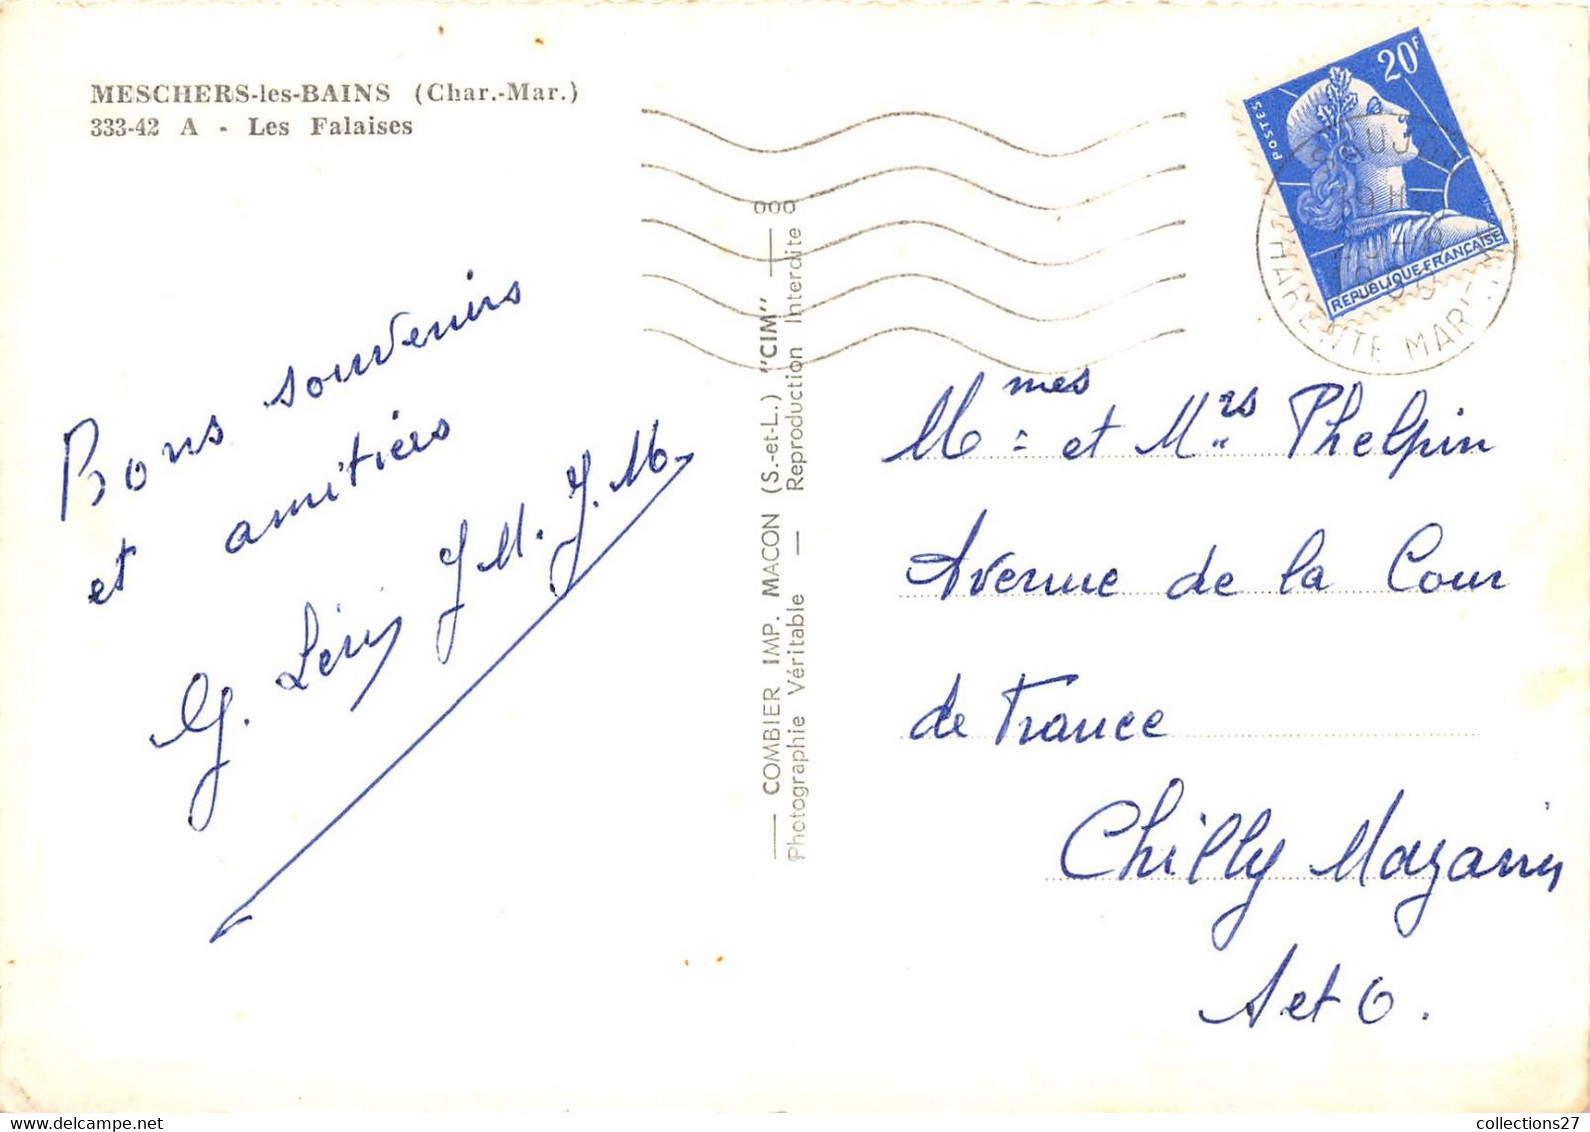 MESCHERS-les-BAINS (Char.-Mar.)
333-42 A - Les Falaises
Bons souvenirs
et amitiés
G. Léris J M. J. M.
COMBIER IMP. MACON (S.-et-L.) "CIM"
Photographie Véritable — Reproduction Interdite
20F
POSTES
REPUBLIQUE FRANÇAISE
CHARENTE MAR
19H
Mmes et Mrs Phelpin
Avenue de la Cour
de France
Chilly Mazarin
S et O.
collections27